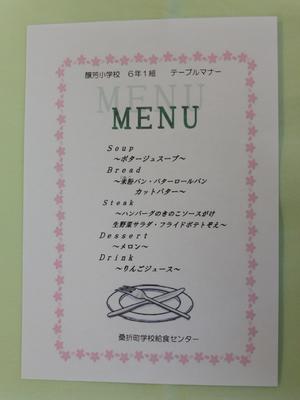 醸芳小学校　6年1組　　テーブルマナー
MENU
MENU
Soup
～ポタージュスープ～
Bread
～米粉パン・バターロールパン
カットバター～
Steak
～ハンバーグのきのこソースがけ
生野菜サラダ・フライドポテトそえ～
Dessert
～メロン～
Drink
～りんごジュース～
桑折町学校給食センター